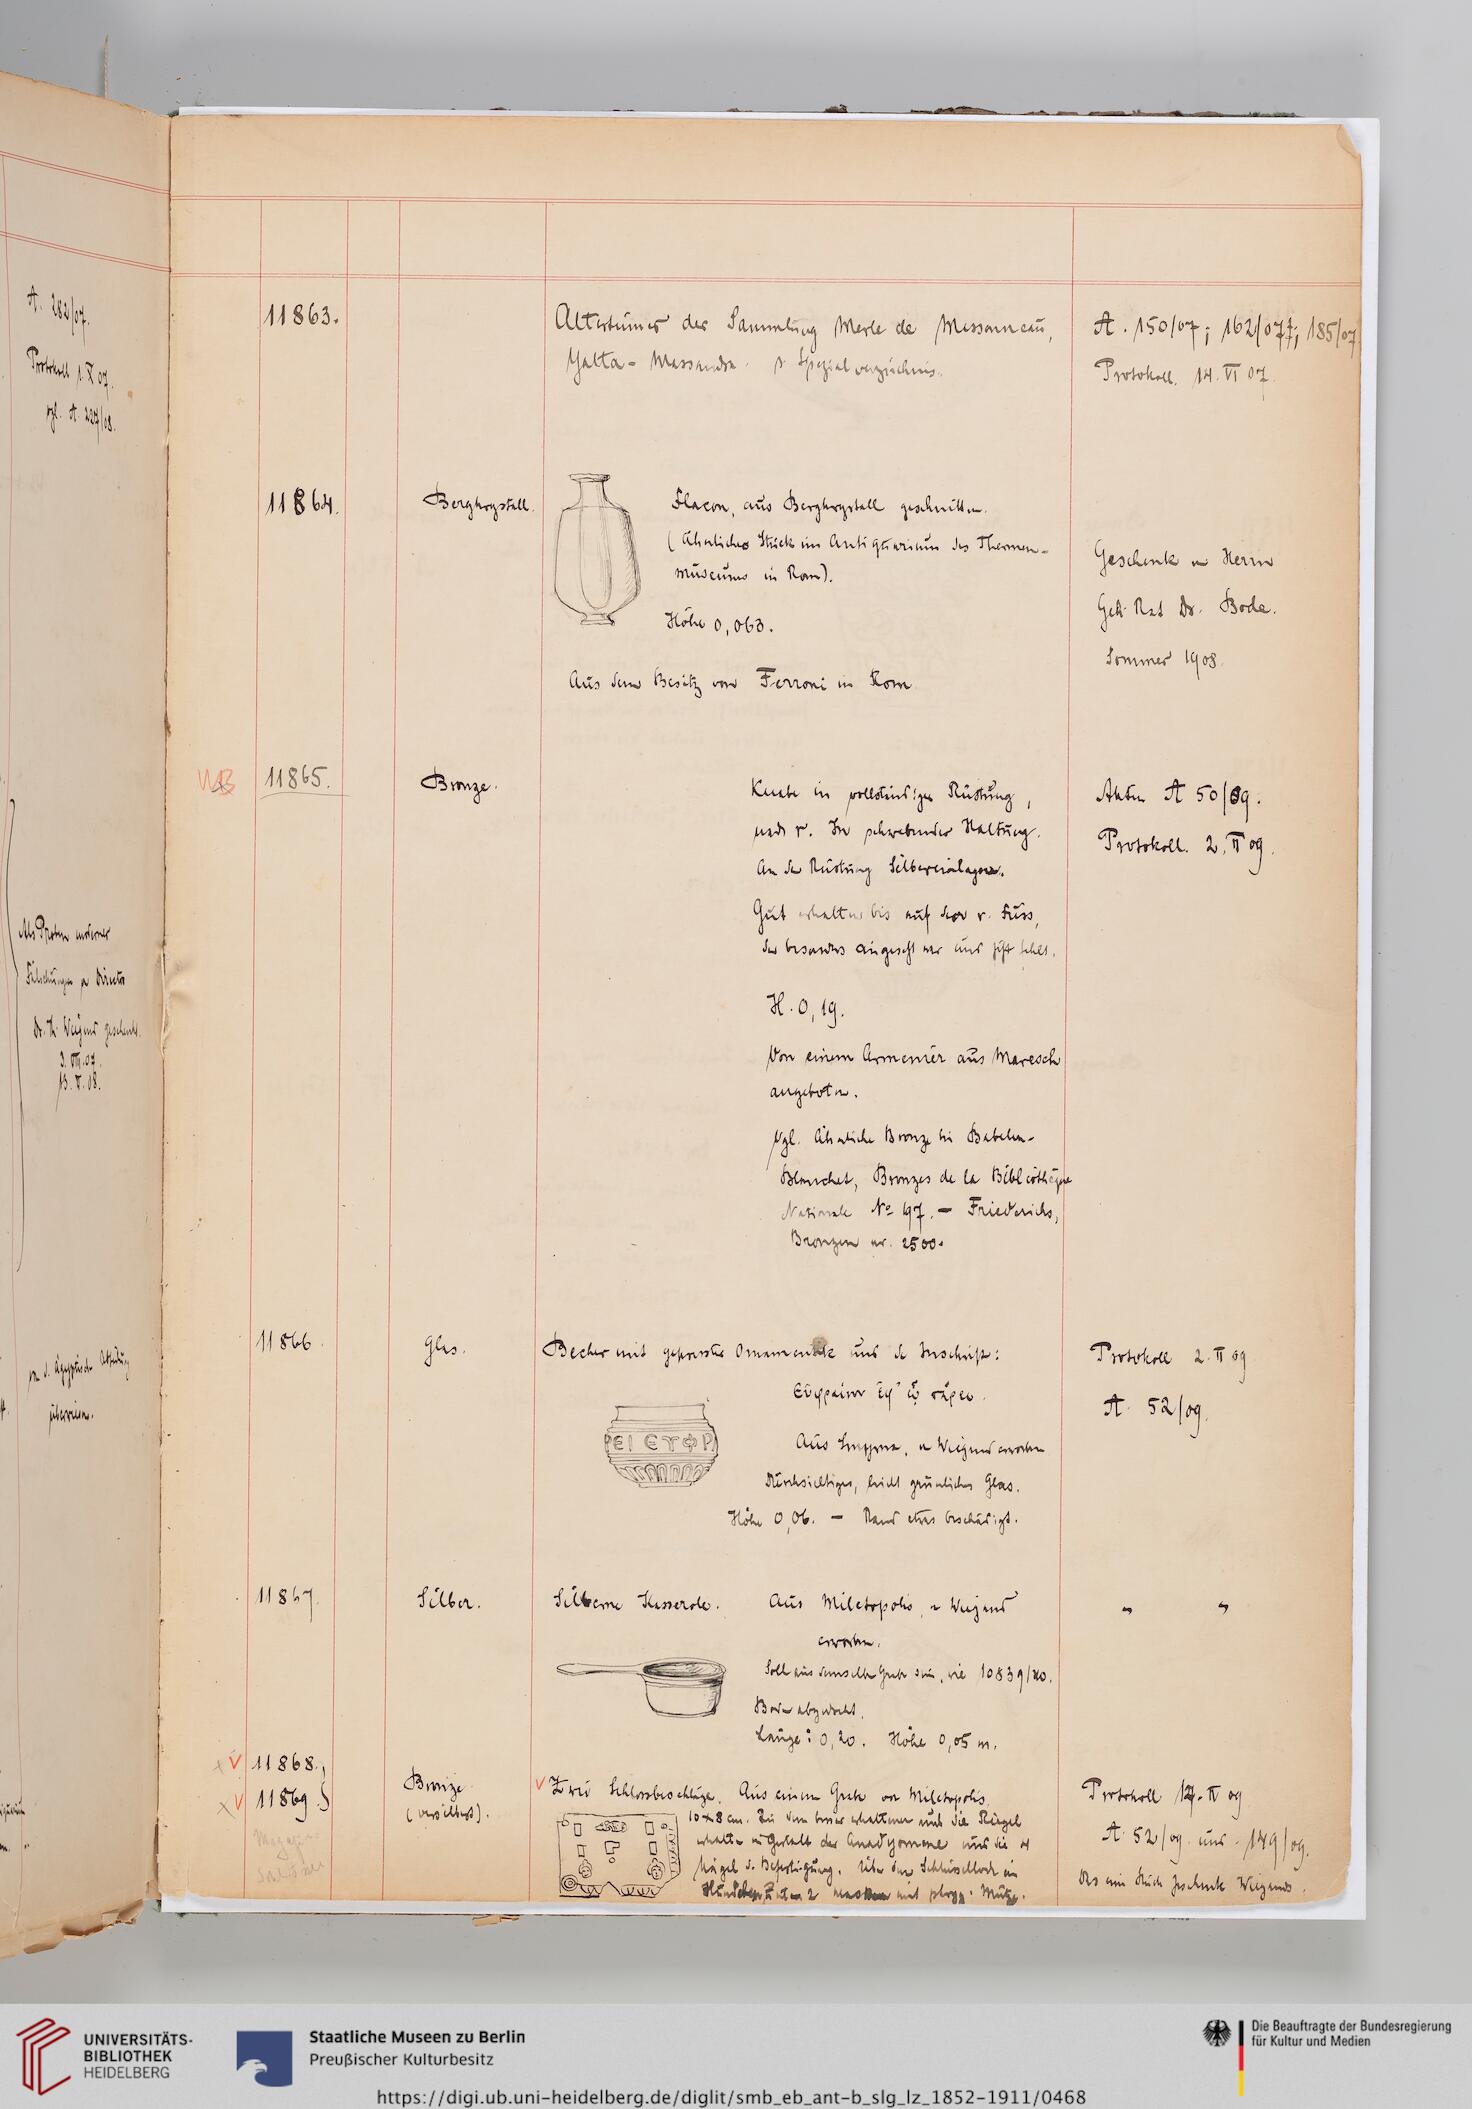 A. 282/07.
Protokoll 1. X 07.
vgl. A. 227/08.
Als Proben moderner
Fälschungen v Director
Dr. Th. Wiegand geschenkt.
3. VIII. 07.
13. V. 08.
von d. Ägyptischen Abteilung
überwiesen.
11863.
Altertümer der Sammlung Merle de Massoneau,
Yalta - Massandra. s. Spezialverzeichnis.
A. 150/07; 162/07; 185/07
Protokoll. 14. VI 07.
11864.
Bergkrystall.
Flacon, aus Bergkrystall geschnitten.
(Ähnliches Stück im Antiquarium des Thermen-
museums in Rom).
Höhe 0,063.
Aus dem Besitz von Ferroni in Rom
Geschenk v Herrn
Geh Rat Dr. Bode.
Sommer 1908.
11865.
Bronze.
Knabe in vollständiger Rüstung,
nach r. In schwebender Haltung.
An der Rüstung Silbereinlagen.
Gut erhalten bis auf den r. Fuss,
der besonders angesetzt war und jetzt fehlt.
H. 0,19.
Von einem Armenier aus Maresch
angeboten.
Vgl. ähnliche Bronze bei Babelon-
Blanchet, Bronzes de la Bibliothèque
Nationale No 197. - Friederichs,
Bronzen nr. 2500.
Akten A 50/09.
Protokoll. 2. II 09.
11866.
Glas.
Becher mit gepresstem Ornamente und der Inschrift:
εὐφραίνου ἐφ' ᾧ πάρει.
ΡΕΙ ΕΥΦΡ
Aus Smyrna, v Wiegand erworben
Durchsichtiges, leicht grünliches Glas.
Höhe 0,06. - Rand etwas beschädigt.
Protokoll 2. II 09
A. 52/09.
11867.
Silber.
Silberne Kasserole. Aus Miletopolis, v Wiegand
erworben.
Soll aus demselben Grabe sein, wie 10839/40.
Boden abgedreht.
Länge: 0,20. Höhe 0,05 m.
" "
V 11868.,
V 11869.}
Bronze
(versilbert).
V Zwei Schlossbeschläge. Aus einem Grabe von Miletopolis.
10 x 8 cm. Bei dem besser erhaltenen sind die Riegel
erhalten in Gestalt der Anadyomene und die 4
Nägel d. Befestigung. Über dem Schlüsselloch ein
Hündchen, unten 2 Masken mit phryg. Mütze.
Protokoll 14. II 09
A. 52/09. und 149/09.
Das ein Stück Geschenk Wiegands.
UNIVERSITÄTS-
BIBLIOTHEK
HEIDELBERG
Staatliche Museen zu Berlin
Preußischer Kulturbesitz
Die Beauftragte der Bundesregierung
für Kultur und Medien
https://digi.ub.uni-heidelberg.de/diglit/smb_eb_ant-b_slg_lz_1852-1911/0468